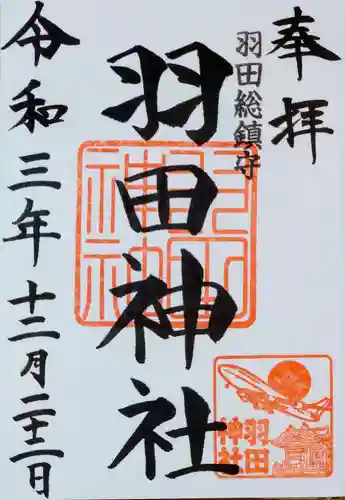 奉拝
羽田総鎮守
羽田神社
令和三年十二月二十二日
羽田神社
羽田
神社